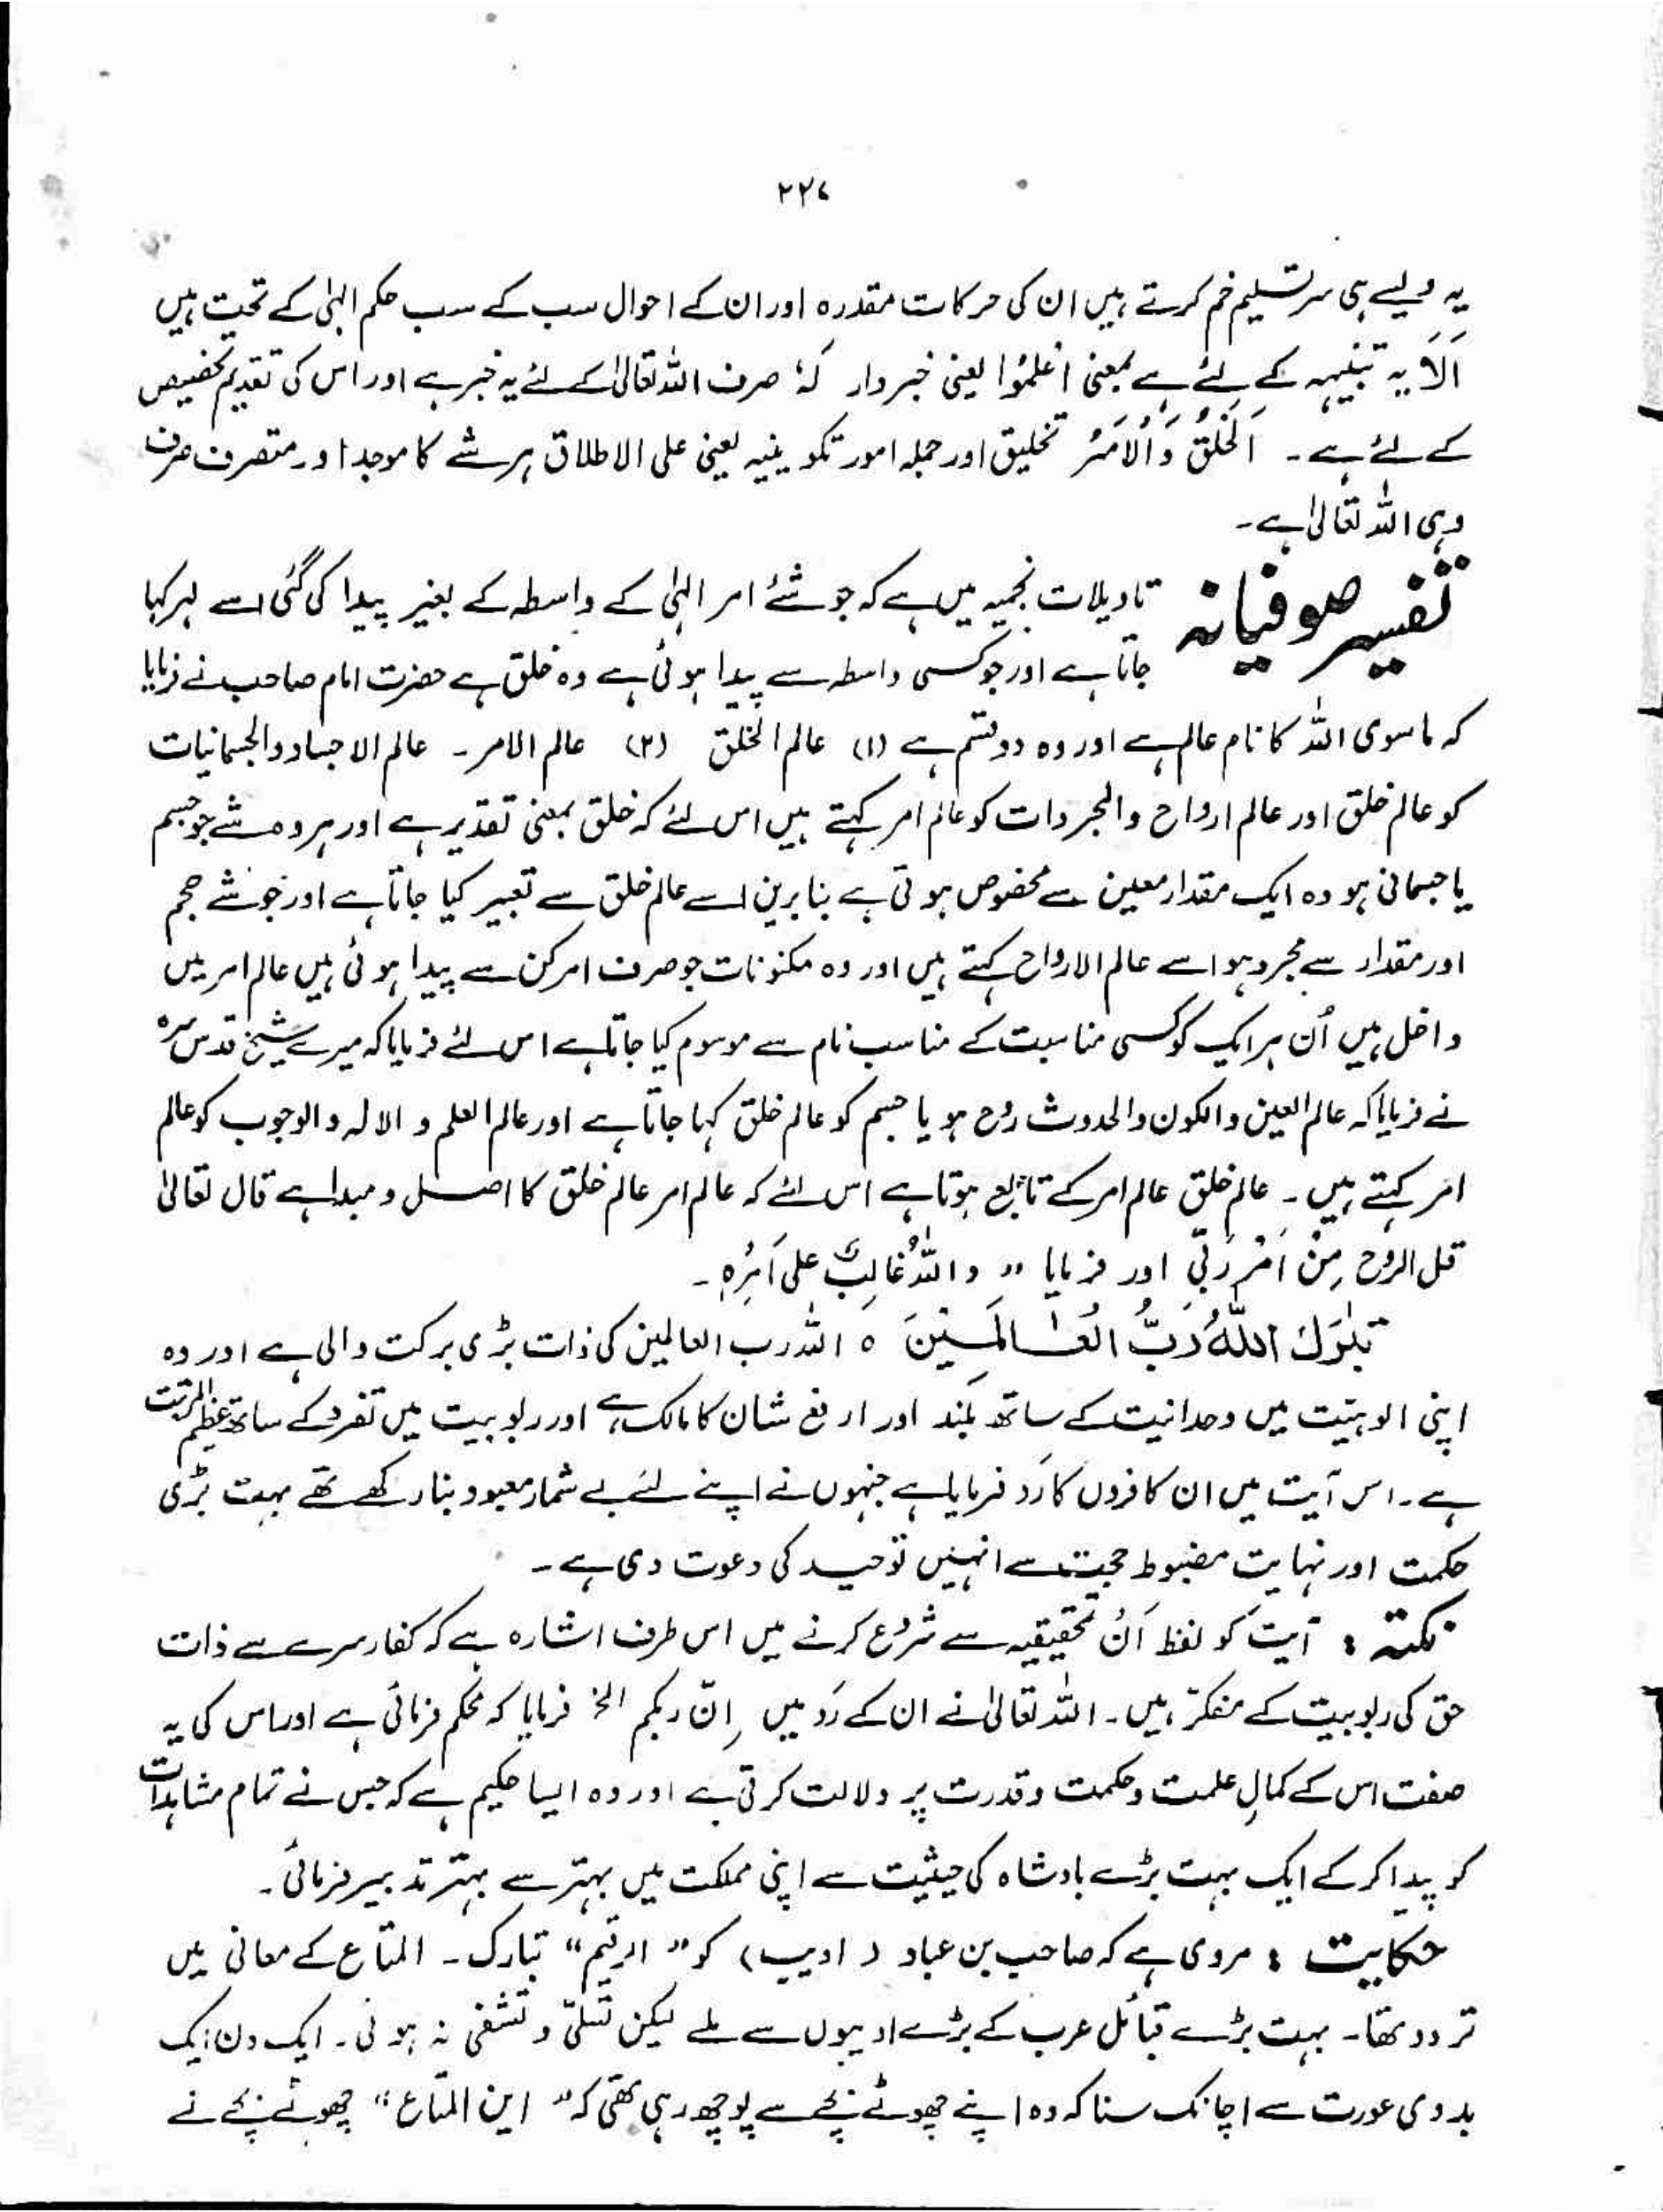 ۲۲۷
یہ ویسے ہی سر تسلیم خم کرتے ہیں ان کی حرکات مقدرہ اور ان کے احوال سب کے سب حکم الہٰی کے تحت ہیں
اَلَا یہ تنبیہہ کے لئے ہے بمعنی اعلمُوا یعنی خبردار لَهُ صرف اللہ تعالیٰ کے لئے یہ خبر ہے اور اس کی تقدیم تخصیص
کے لئے ہے ۔ اَلْخَلْقُ وَالْاَمْرُ تخلیق اور جملہ امور تکوینیہ یعنی علی الاطلاق ہر شے کا موجد اور متصرف صرف
وہی اللہ تعالیٰ ہے۔
تفسیر صوفیانہ تاویلات نجمیہ میں ہے کہ جو شئے امر الٰہی کے واسطہ کے بغیر پیدا کی گئی اسے کہا
جاتا ہے اور جو کسی واسطہ سے پیدا ہوئی ہے وہ خلق ہے حضرت امام صاحب نے فرمایا
کہ ماسوی اللہ کا نام عالم ہے اور وہ دو قسم ہے (۱) عالم الخلق (۲) عالم الامر ۔ عالم الاجساد والجسمانیات
کو عالم خلق اور عالم ارواح والمجردات کو عالم امر کہتے ہیں اس لئے کہ خلق بمعنی تقدیر ہے اور ہر وہ شے جو جسم
یا جسمانی ہو وہ ایک مقدار معین سے مخصوص ہوتی ہے بنا بریں اسے عالم خلق سے تعبیر کیا جاتا ہے اور جو شے حجم
اور مقدار سے مجرد ہو اسے عالم الارواح کہتے ہیں اور وہ مکنونات جو صرف امر کن سے پیدا ہوئی ہیں عالم امر میں
داخل ہیں اُن ہر ایک کو کسی مناسبت کے مناسب نام سے موسوم کیا جاتا ہے اس لئے فرمایا کہ میرے شیخ قدس سرہ
نے فرمایا کہ عالم العین والکون والحدوث روح ہو یا جسم کو عالم خلق کہا جاتا ہے اور عالم العلم و الالہ والوجوب کو عالم
امر کہتے ہیں ۔ عالم خلق عالم امر کے تابع ہوتا ہے اس لئے کہ عالم امر عالم خلق کا اصل و مبدا ہے قال تعالیٰ
قل الروح مِنْ اَمْرِ رَبِّی اور فرمایا " واللّٰهُ غَالِبٌ علی اَمْرِہٖ ۔
تَبٰرَكَ اللّٰهُ رَبُّ الْعٰلَمِیْنَ ه اللہ رب العالمین کی ذات بڑی برکت والی ہے اور وہ
اپنی الوہیت میں وحدانیت کے ساتھ بلند اور ارفع شان کا مالک ہے اور ربوبیت میں تفرد کے ساتھ عظیم المرتبت
ہے۔ اس آیت میں ان کافروں کا رَد فرمایا ہے جنہوں نے اپنے لئے بے شمار معبود بنا رکھے تھے بہت بڑی
حکمت اور نہایت مضبوط حجت سے انہیں توحید کی دعوت دی ہے ۔
نکتہ : آیت کو لفظ اَنْ تحقیقیہ سے شروع کرنے میں اس طرف اشارہ ہے کہ کفار سرے سے ذات
حق کی ربوبیت کے منکر ہیں۔ اللہ تعالیٰ نے ان کے رَد میں اِنّ ربکم الخ فرمایا کہ محکم فرمائی ہے اور اس کی یہ
صفت اس کے کمالِ علمت وحکمت وقدرت پر دلالت کرتی ہے اور وہ ایسا حکیم ہے کہ جس نے تمام مشاہدات
کو پیدا کر کے ایک بہت بڑے بادشاہ کی حیثیت سے اپنی مملکت میں بہتر سے بہتر تدبیر فرمائی۔
حکایت : مروی ہے کہ صاحب بن عباد ( ادیب) کو " الرقیم" تبارک ۔ المتاع کے معانی میں
تردد تھا۔ بہت بڑے قبائل عرب کے بڑے ادیبوں سے ملے لیکن تسلّی و تشفی نہ ہوئی۔ ایک دن ایک
بدوی عورت سے اچانک سنا کہ وہ اپنے چھوٹے بچے سے پوچھ رہی تھی کہ " این المتاع" چھوٹے بچے نے